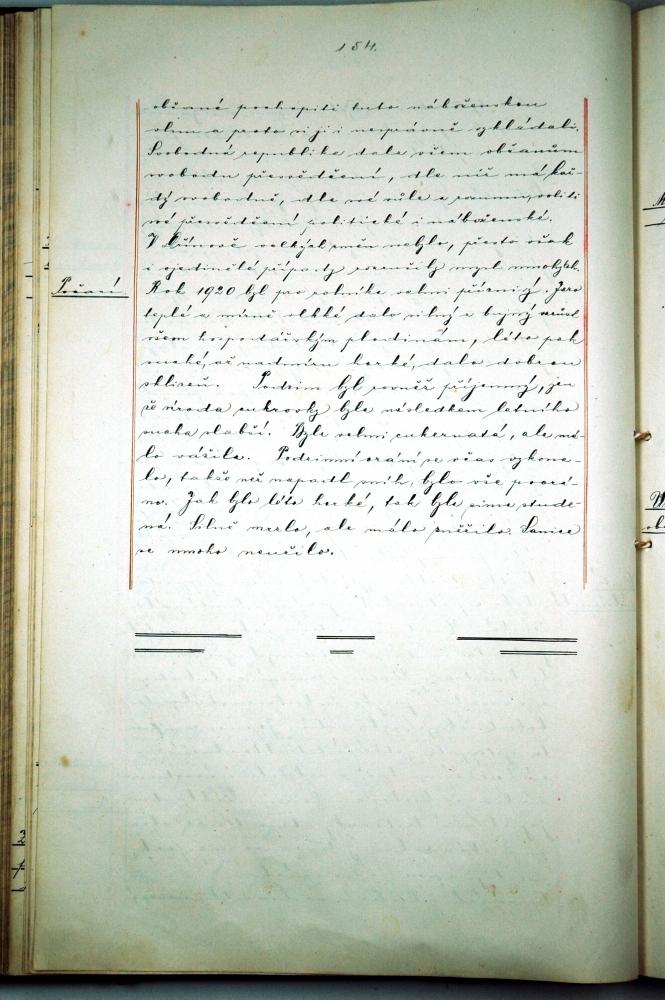 154.
občané pochopiti tuto náboženskou
vlnu a proto si ji i nesprávně vykládali.
Svobodná republika dala všem občanům
svobodu přesvědčení, dle níž má kaž-
dý svobodně, dle své vůle a rozumu, voliti
své přesvědčení politické i náboženské.
V Lůnově velkých změn nebylo, přesto však
i ojedinělé případy rozvířily mysl mnohých.
Počasí.
Rok 1920 byl pro rolníka velmi příznivý. Jaro
teplé a mírně vlhké dalo silný a bujný vzrůst
všem hospodářským plodinám, léto pak
suché, až nadmíru horké, dalo dobrou
sklizeň. Podzim byl rovněž příjemný, jen
že úroda cukrovky byla následkem letního
sucha slabší. Byla velmi cukernatá, ale má-
lo vážila. Podzimní orání se včas vykona-
lo, takže než napadl sníh, bylo vše poorá-
no. Jak bylo léto horké, tak byla zima stude-
ná. Silně mrzlo, ale málo sněžilo. Sanice
se mnoho neužilo.